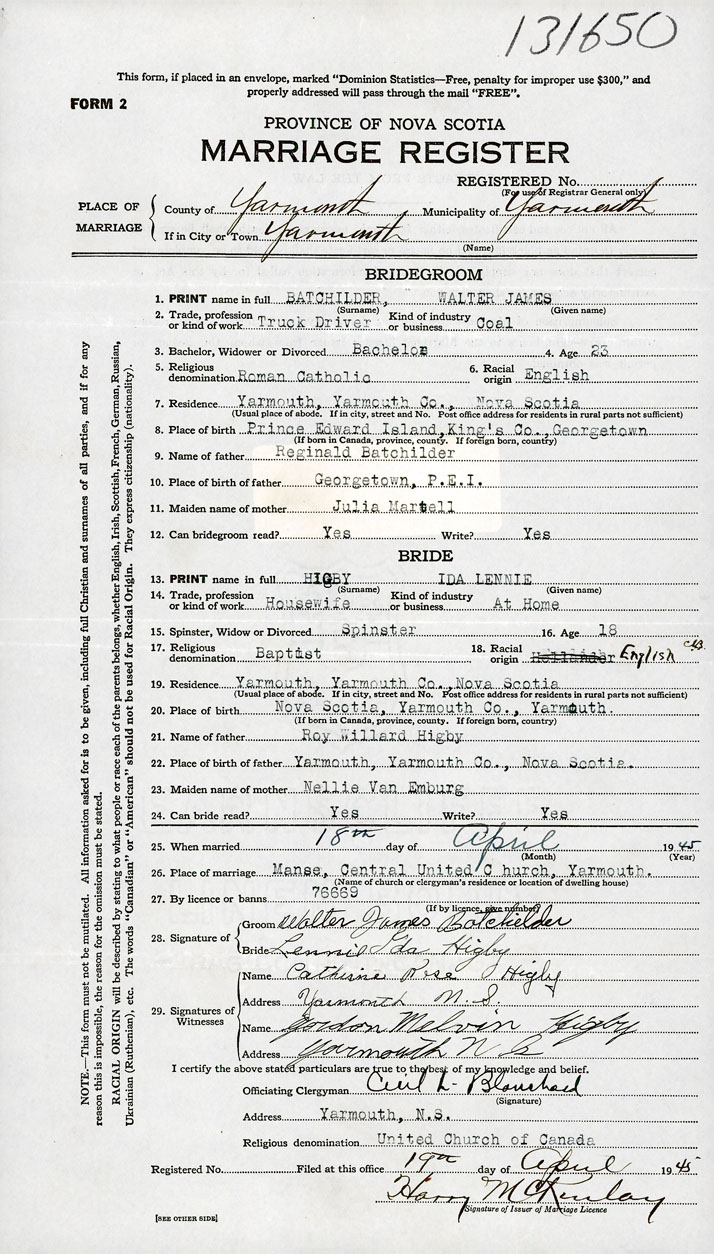 131650
This form, if placed in an envelope, marked "Dominion Statistics—Free, penalty for improper use $300," and
properly addressed will pass through the mail "FREE".
FORM 2
PROVINCE OF NOVA SCOTIA
MARRIAGE REGISTER
REGISTERED No.
(For use of Registrar General only)
PLACE OF MARRIAGE
County of Yarmouth Municipality of Yarmouth
If in City or Town Yarmouth
(Name)
BRIDEGROOM
1. PRINT name in full BATCHILDER, WALTER JAMES
(Surname) (Given name)
2. Trade, profession or kind of work Truck Driver Kind of industry or business Coal
3. Bachelor, Widower or Divorced Bachelor 4. Age 23
5. Religious denomination Roman Catholic 6. Racial origin English
7. Residence Yarmouth, Yarmouth Co., Nova Scotia
(Usual place of abode. If in city, street and No. Post office address for residents in rural parts not sufficient)
8. Place of birth Prince Edward Island, King's Co., Georgetown
(If born in Canada, province, county. If foreign born, country)
9. Name of father Reginald Batchilder
10. Place of birth of father Georgetown, P.E.I.
11. Maiden name of mother Julia Martell
12. Can bridegroom read? Yes Write? Yes
BRIDE
13. PRINT name in full HIGBY IDA LENNIE
(Surname) (Given name)
14. Trade, profession or kind of work Housewife Kind of industry or business At Home
15. Spinster, Widow or Divorced Spinster 16. Age 18
17. Religious denomination Baptist 18. Racial origin Hollander English
19. Residence Yarmouth, Yarmouth Co., Nova Scotia
(Usual place of abode. If in city, street and No. Post office address for residents in rural parts not sufficient)
20. Place of birth Nova Scotia, Yarmouth Co., Yarmouth.
(If born in Canada, province, county. If foreign born, country)
21. Name of father Roy Willard Higby
22. Place of birth of father Yarmouth, Yarmouth Co., Nova Scotia.
23. Maiden name of mother Nellie Van Emburg
24. Can bride read? Yes Write? Yes
25. When married 18th day of April 1945
(Month) (Year)
26. Place of marriage Manse, Central United C hurch, Yarmouth.
(Name of church or clergyman's residence or location of dwelling house)
27. By licence or banns 76669
(If by licence, give number)
28. Signature of
Groom Walter James Batchelder
Bride Lennie Ida Higby
29. Signatures of Witnesses
Name Catherine Rose Higby
Address Yarmouth N.S.
Name Gordon Melvin Higby
Address Yarmouth N S
I certify the above stated particulars are true to the best of my knowledge and belief.
Officiating Clergyman Cecil L. Blanchard
(Signature)
Address Yarmouth, N.S.
Religious denomination United Church of Canada
Registered No. Filed at this office 19th day of April 1945
Harry McKinlay
Signature of Issuer of Marriage Licence
[SEE OTHER SIDE]
NOTE.—This form must not be mutilated. All information asked for is to be given, including full Christian and surnames of all parties, and if for any
reason this is impossible, the reason for the omission must be stated.
RACIAL ORIGIN will be described by stating to what people or race each of the parents belongs, whether English, Irish, Scottish, French, German, Russian,
Ukrainian (Ruthenian), etc. The words "Canadian" or "American" should not be used for Racial Origin. They express citizenship (nationality).